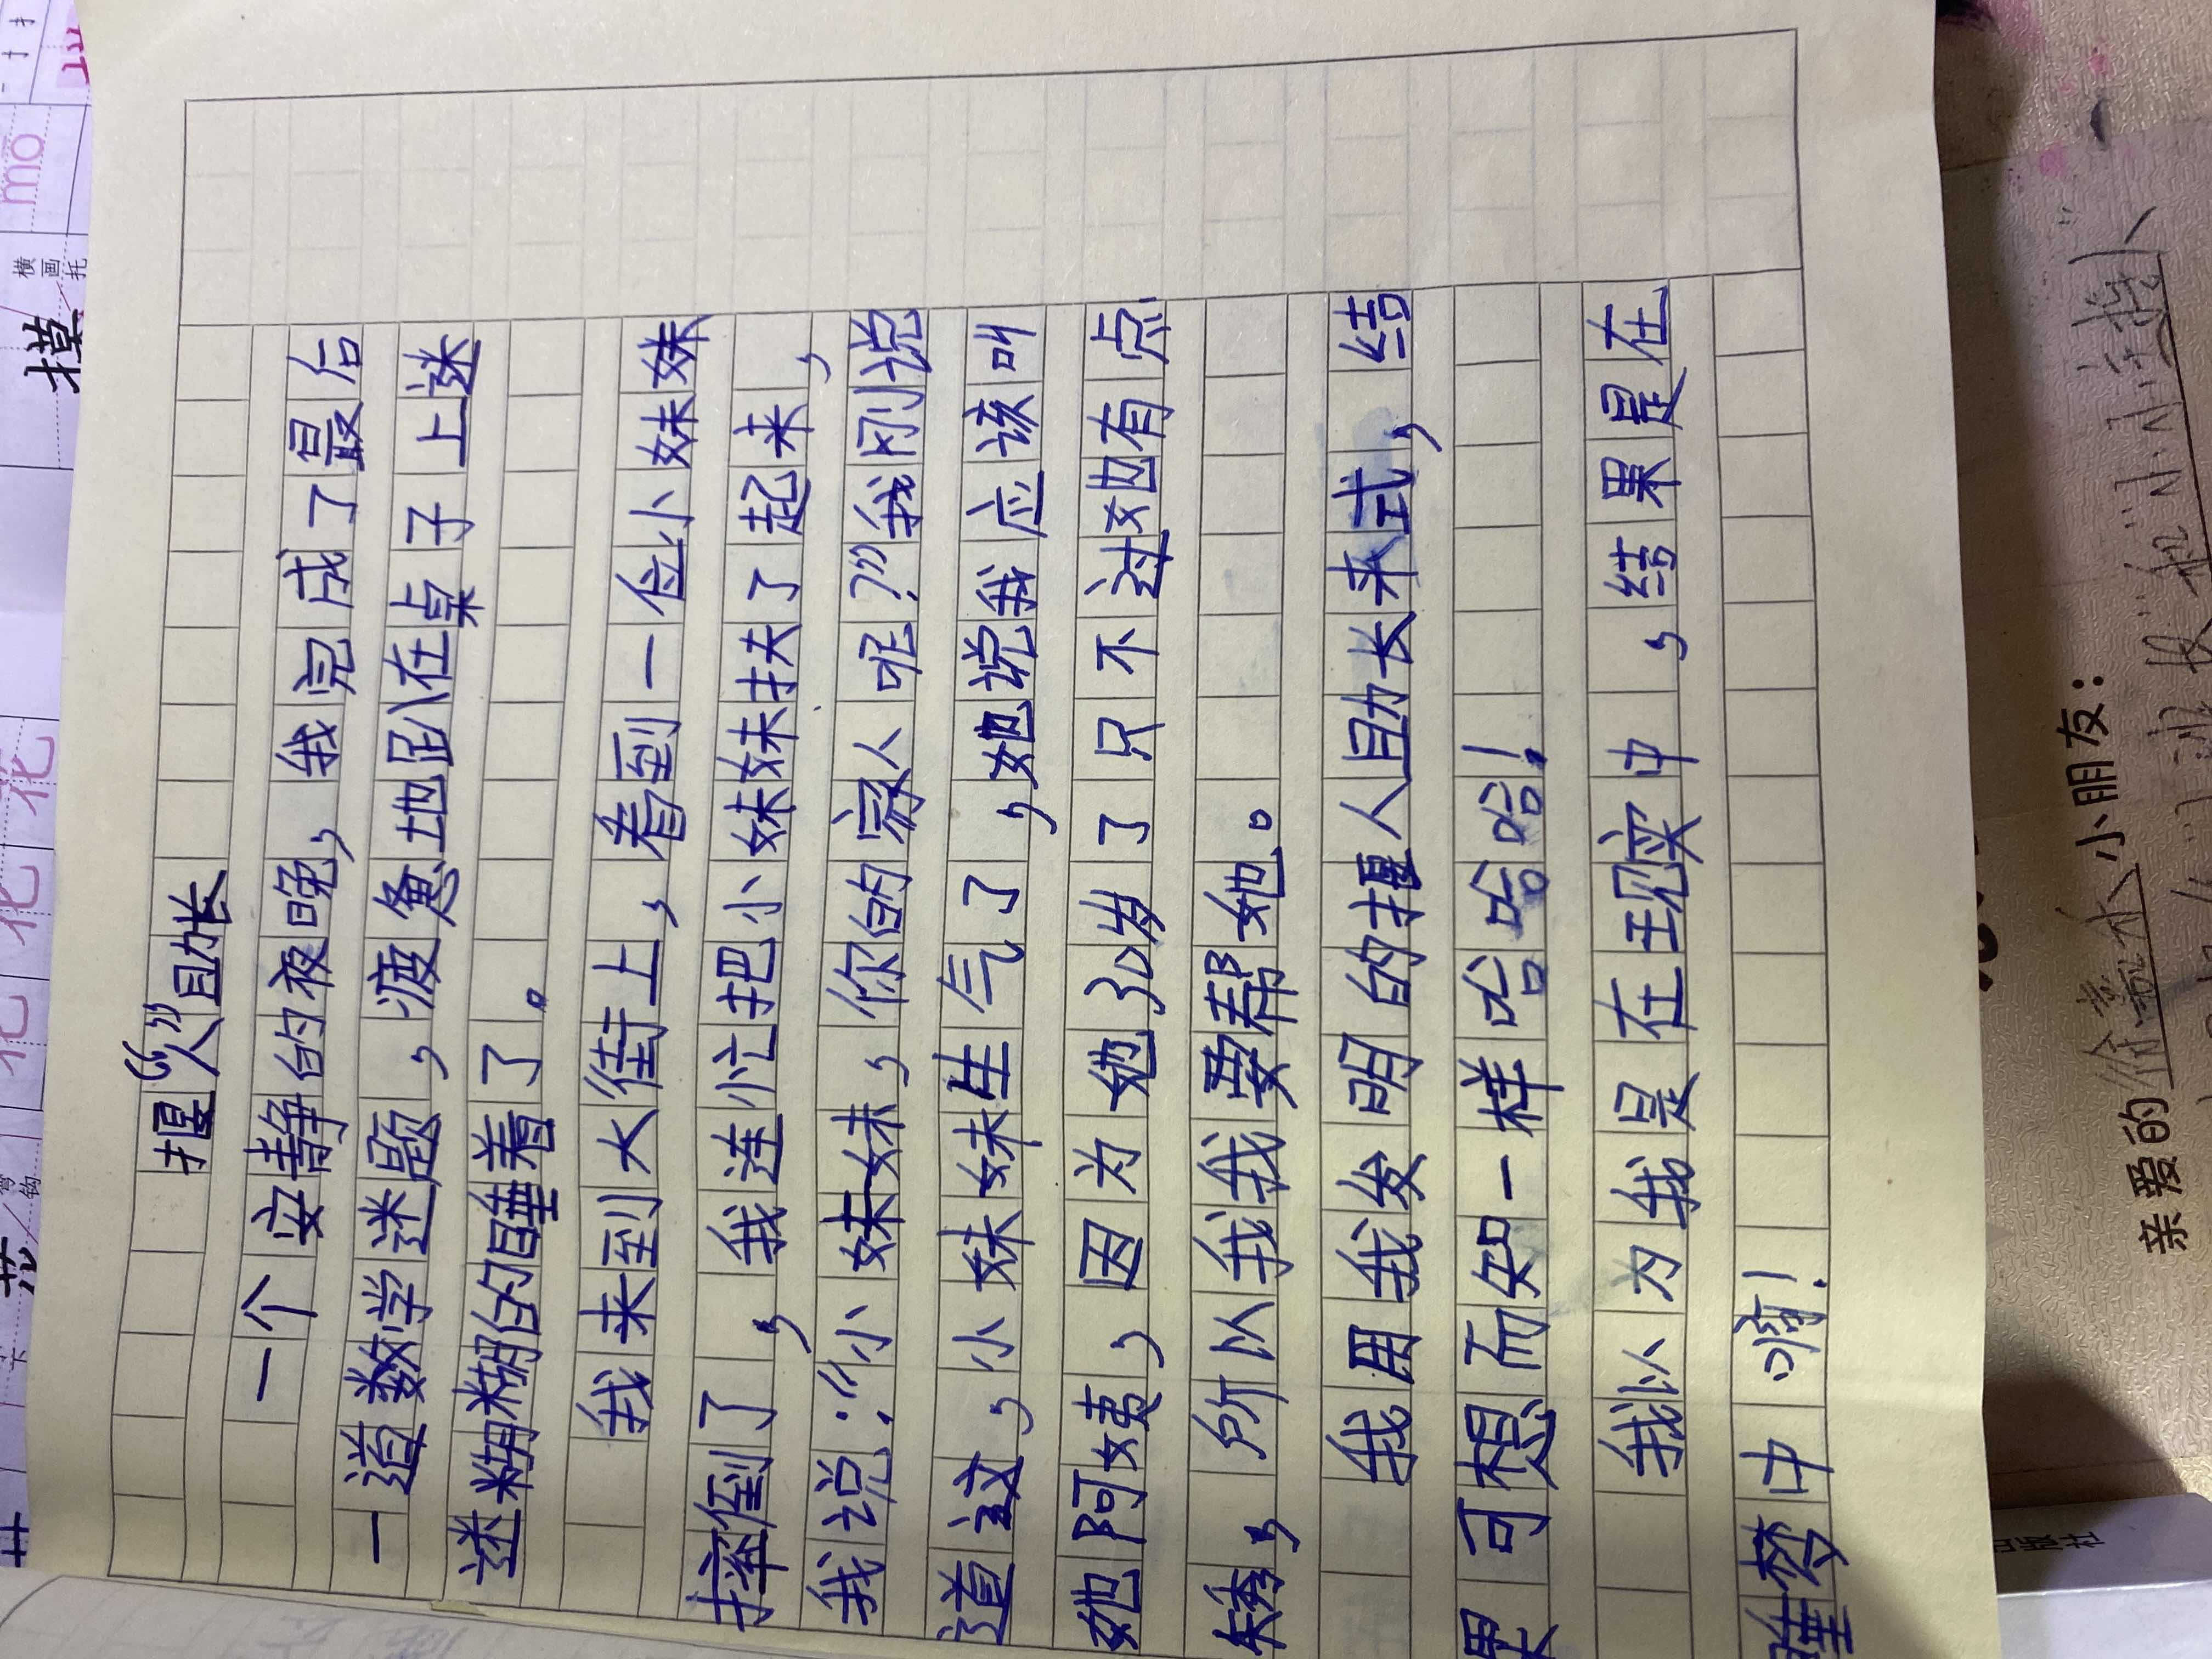 揠“人”助长
一个安静的夜晚，我完成了最后
一道数学迷题，疲惫地趴在桌子上迷
迷糊糊的睡着了。
我来到大街上，看到一位小妹妹
摔倒了，我连忙把小妹妹扶了起来，
我说：“小妹妹，你的家人呢？”我刚说
道这，小妹妹生气了，她说我应该叫
她阿姨，因为她30岁了只不过她有点
矮，所以我我要帮她。
我用我发明的揠人助长来式，结
果可想而知一样哈哈哈！
我以为我是在现实中，结果是在
睡梦中啊！
亲爱的
小朋友：
摸
横
画
托
mō
花
花
花
弯
钩